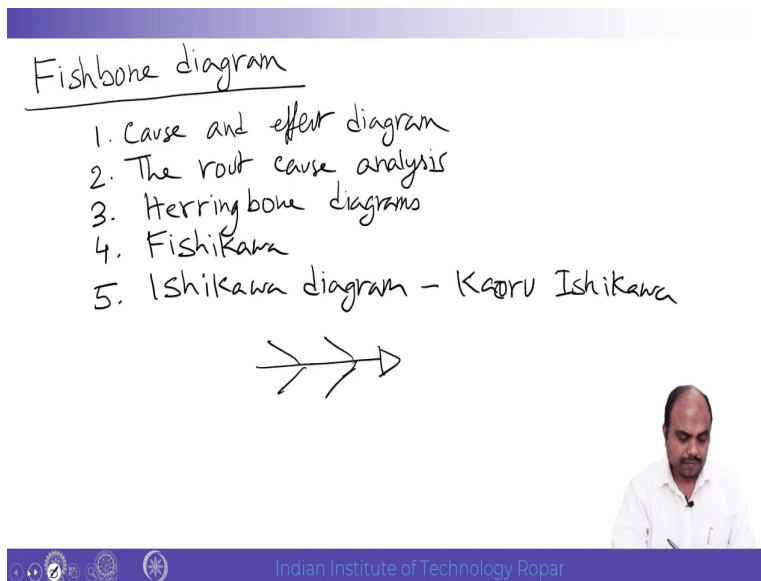 Fishbone diagram
1. Cause and effect diagram
2. The rout cause analysis
3. Herringbone diagrams
4. Fishikawa
5. Ishikawa diagram - Kaoru Ishikawa
Indian Institute of Technology Ropar